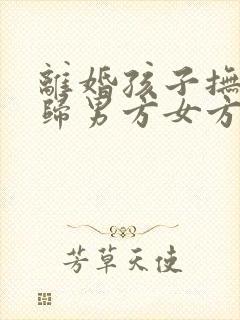 離婚孩子撫
歸男方女方
芳草天使